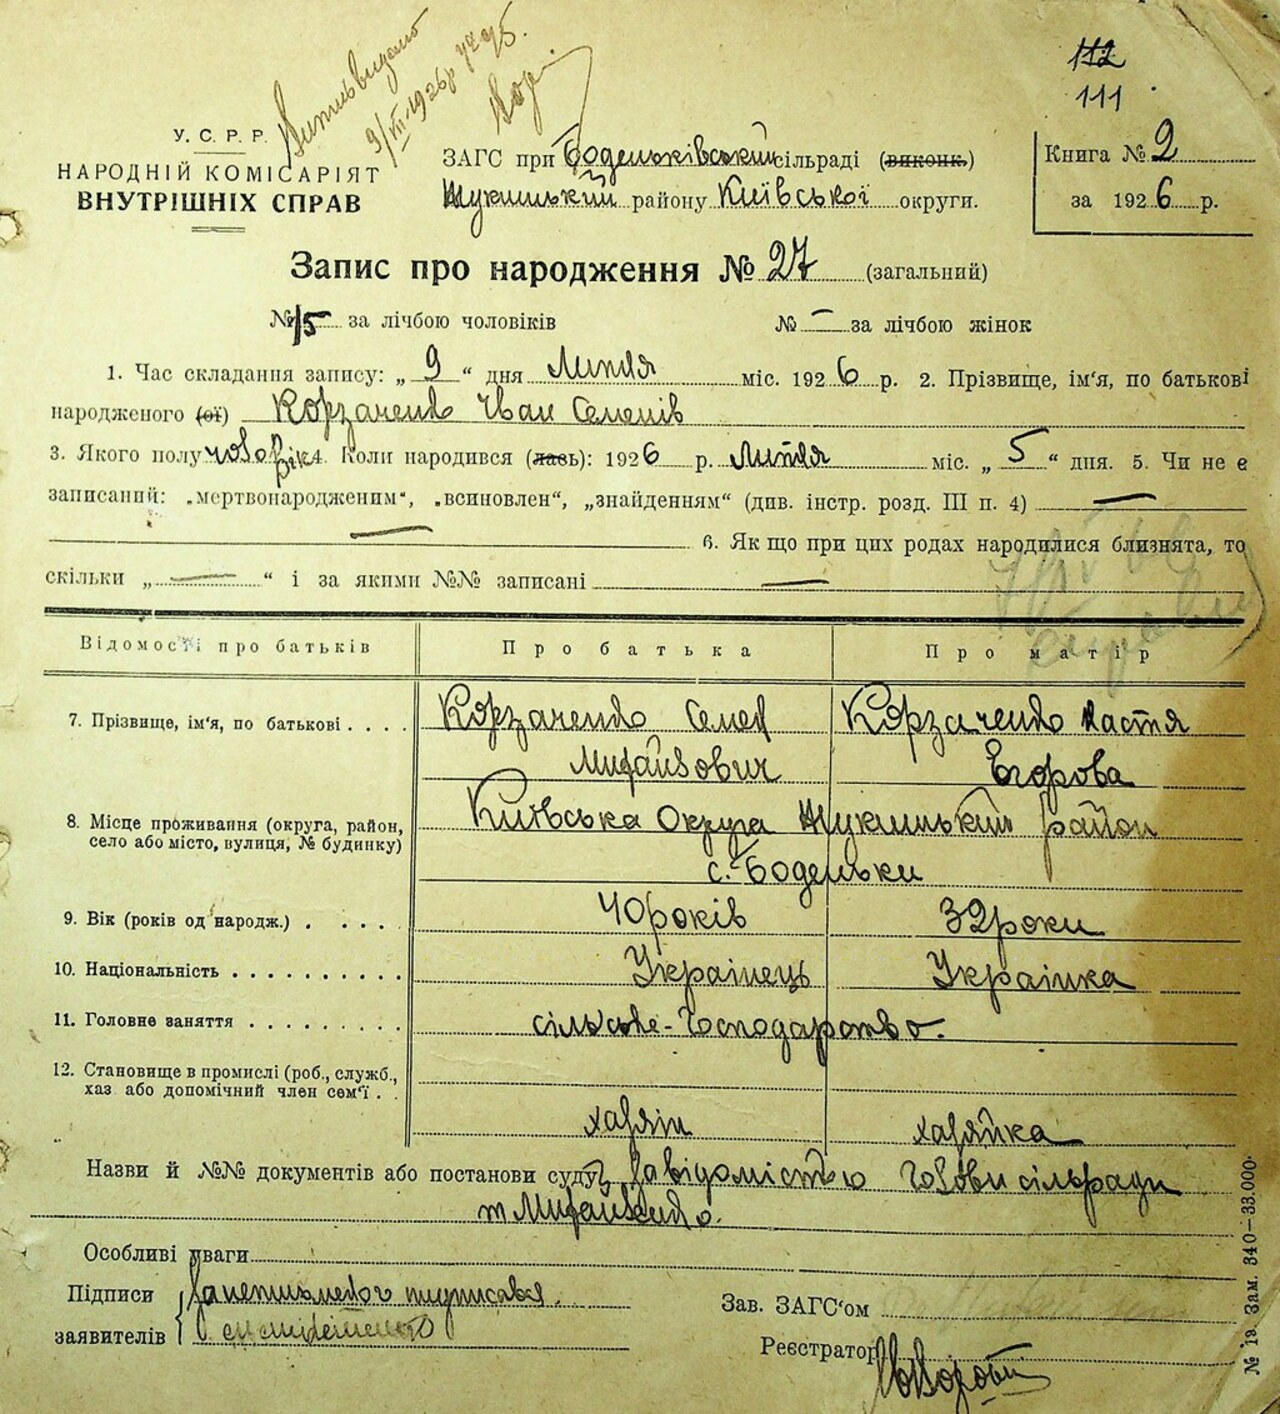 112
111
Витяг видано
9/VII 1926р.
У. С. Р. Р.
НАРОДНІЙ КОМІСАРІЯТ
ВНУТРІШНІХ СПРАВ
ЗАГС при Боденьківський сільраді (виконк.)
Жукинський району Київської округи.
Книга № 2
за 1926 р.
Запис про народження № 27 (загальний)
№ 15 за лічбою чоловіків № — за лічбою жінок
1. Час складання запису: „ 9 “ дня Липня міс. 1926 р. 2. Прізвище, ім'я, по батькові
народженого (ої) Корзаченко Іван Семенів
3. Якого полу чоловік 4. Коли народився (лась): 1926 р. Липня міс. „ 5 “ дня. 5. Чи не є
записаний: „мертвонародженим“, „всиновлен“, „знайденням“ (див. інстр. розд. III п. 4) —
— 6. Як що при цих родах народилися близнята, то
скільки „ — “ і за якими №№ записані —
Відомості про батьків Про батька Про матір
7. Прізвище, ім'я, по батькові . . . . Корзаченко Семен Корзаченко Настя
Михайлович Егорова
8. Місце проживання (округа, район,
село або місто, вулиця, № будинку)
Київська Округа Жукинський район
с. Боденьки
9. Вік (років од народж.) . . . . . 40 років 32 роки
10. Національність . . . . . . . . . . Українець Українка
11. Головне заняття . . . . . . . . . сільське-Господарство.
12. Становище в промислі (роб., служб.,
хаз або допомічний член сем'ї . .
хазяїн хазяйка
Назви й №№ документів або постанови суду За відомістю Голови сільради
т Михайленко.
Особливі уваги
Підписи
заявителів
За неписьменого підписався
Зав. ЗАГС'ом
Реєстратор
№ 19. Зам. 340—33.000.